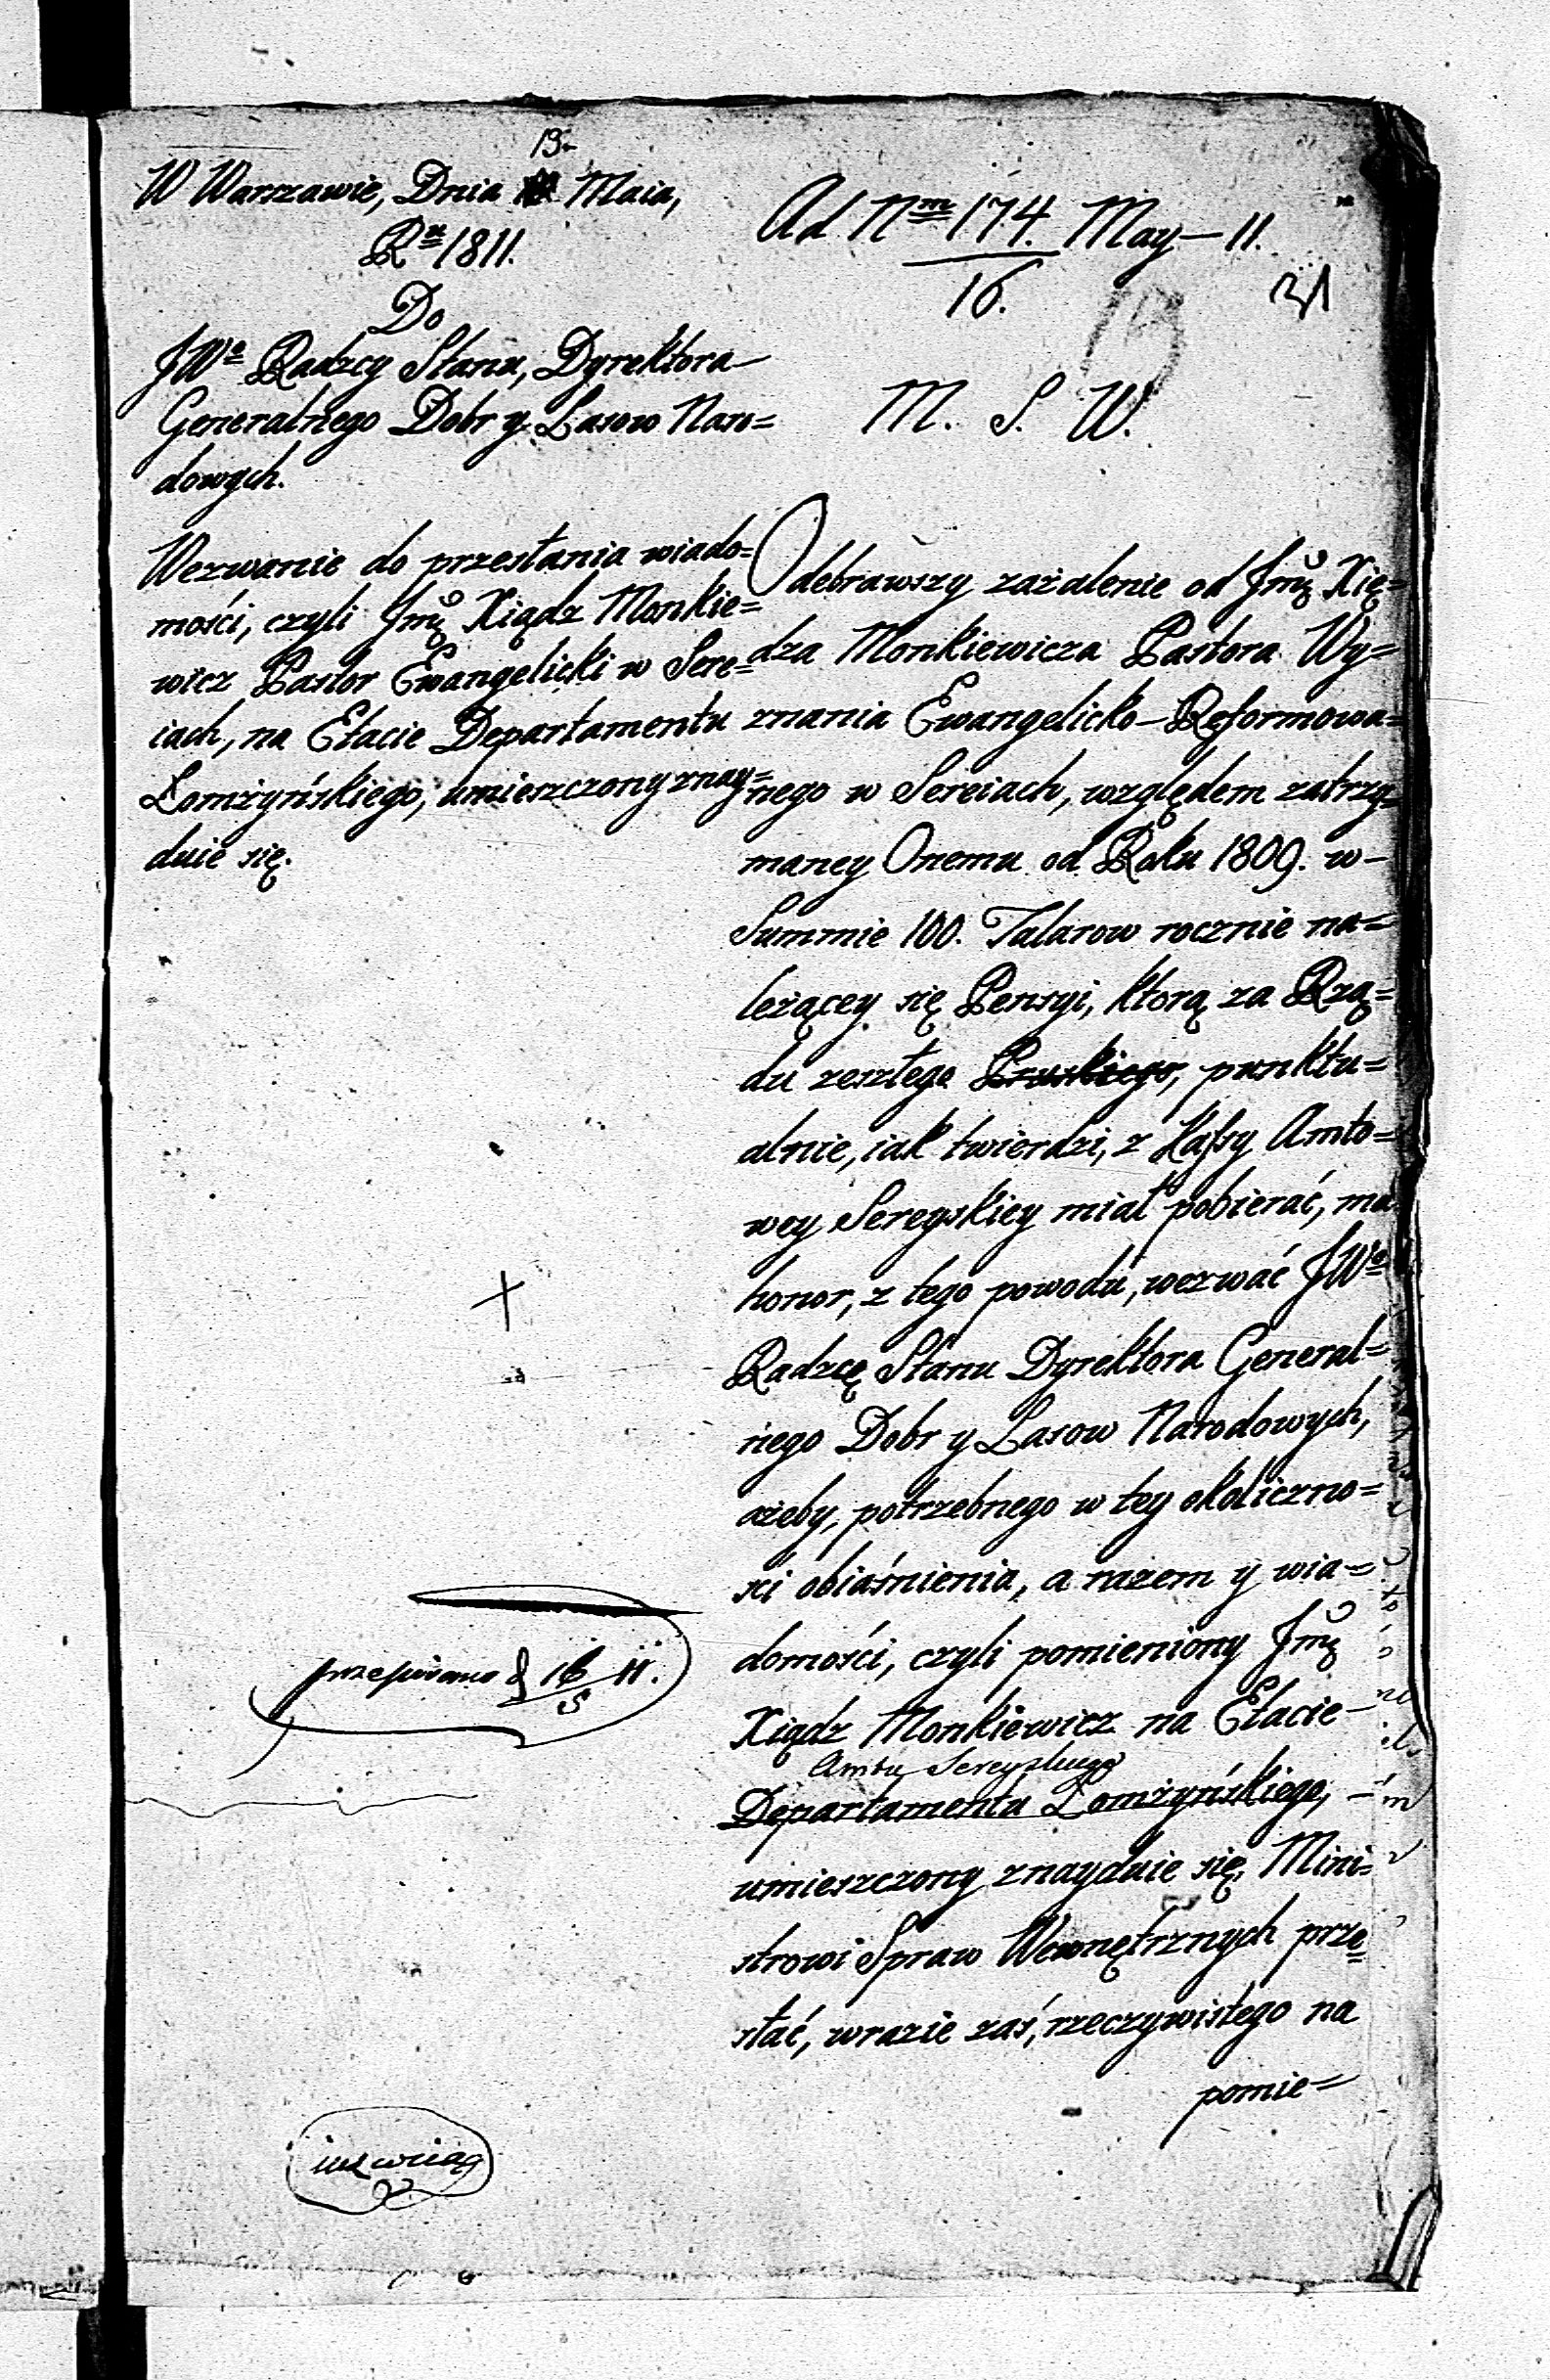 13.
W Warszawie, Dnia Maia,
Ru 1811.
Do
JWo Radzcy Stanu, Dyrektora
Generalnego Dobr y Lasow Naro=
dowych.
Wezwanie do przesłania wiado=
mości, czyli Jmć Xiądz Monkie=
wicz Pastor Ewangelicki w Sere=
iach, na Etacie Departamentu
Łomżyńskiego, umieszczony znay=
duie się.
przepisano d 16/5 11.
Ad Nm 174. May – 11.
16.
31
19
M. S. W.
Odebrawszy zażalenie od Jmć Xię=
dza Monkiewicza Pastora Wy=
znania Ewangelicko–Reformowa=
nego w Sereiach, względem zatrzy=
maney Onemu od Roku 1809. w–
Summie 100. Talarow rocznie na=
leżącey się Pensyi, ktorą za Rzą=
du zeszłego Pruskiego, punktu=
alnie, iak twierdzi, z Kassy Amto=
wey Sereyskiey miał pobierać, ma
honor, z tego powodu, wezwać JWo
Radzcę Stanu Dyrektora General=
nego Dobr y Lasow Narodowych,
ażeby, potrzebnego w tey okoliczno=
ści obiaśnienia, a razem y wia=
domości, czyli pomieniony Jmć
Xiądz Monkiewicz na Etacie–
Amtu Sereyskiego
Departamentu Łomżyńskiego, –
umieszczony znayduie się, Mini=
strowi Spraw Wewnętrznych prze=
słać, wrazie zaś, rzeczywistego na
pomie=